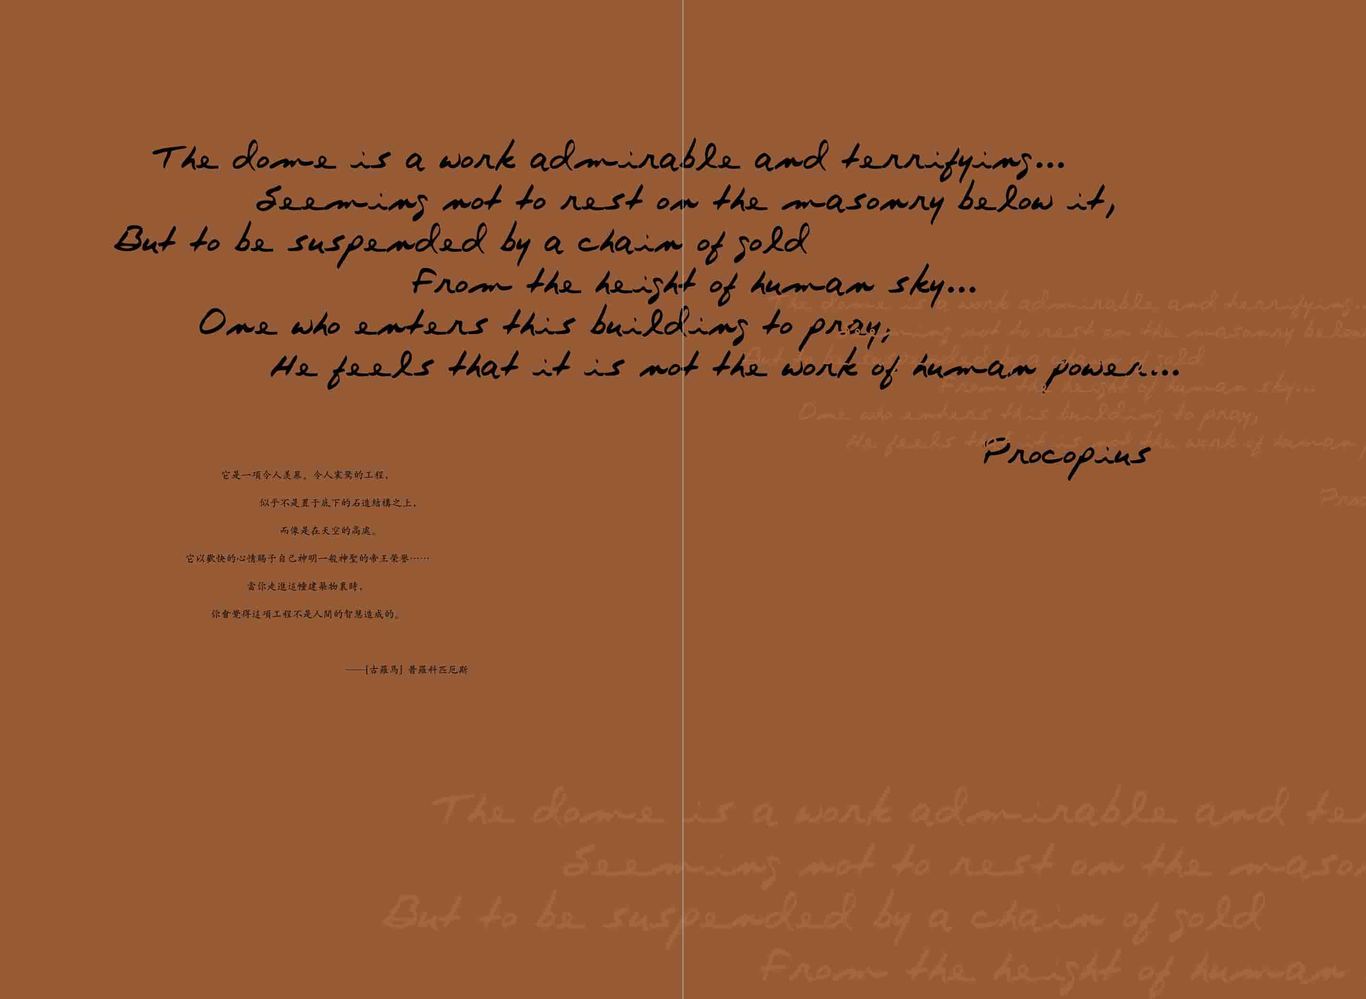 The dome is a work admirable and terrifying...
Seeming not to rest on the masonry below it,
But to be suspended by a chain of gold
From the height of human sky...
One who enters this building to pray,
He feels that it is not the work of human power....
Procopius
The dome is a work admirable and terrifying.
ming not to rest on the masonry below
But to be suspended by a chain of gold
From the height of human sky...
One who enters this building to pray,
He feels that it is not the work of human
Proc
它是一項令人羨慕、令人震驚的工程,
似乎不是置于底下的石造結構之上,
而像是在天空的高處。
它以歡快的心情賜予自己神明一般神聖的帝王榮譽……
當你走進這幢建築物裏時,
你會覺得這項工程不是人間的智慧造成的。
——[古羅馬] 普羅科匹厄斯
The dome is a work admirable and te
Seeming not to rest on the mason
But to be suspended by a chain of gold
From the height of human